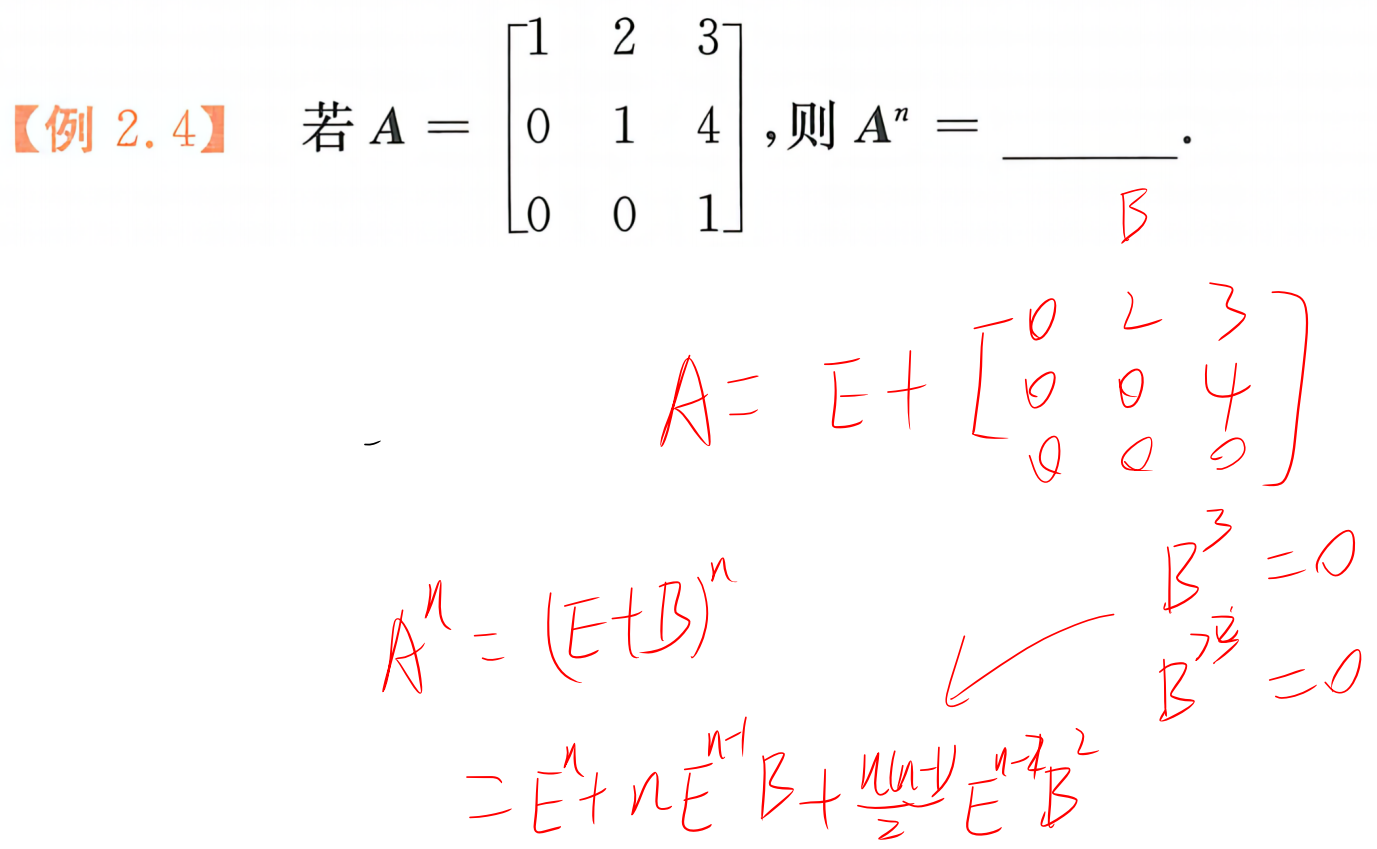 【例 2.4】 若 A = [1 2 3; 0 1 4; 0 0 1], 则 Aⁿ = ______.
B
A = E + [0 2 3; 0 0 4; 0 0 0]
B³ = 0
Aⁿ = (E+B)ⁿ
= 0
= Eⁿ + nEⁿ⁻¹B + n(n-1)/2 Eⁿ⁻²B²